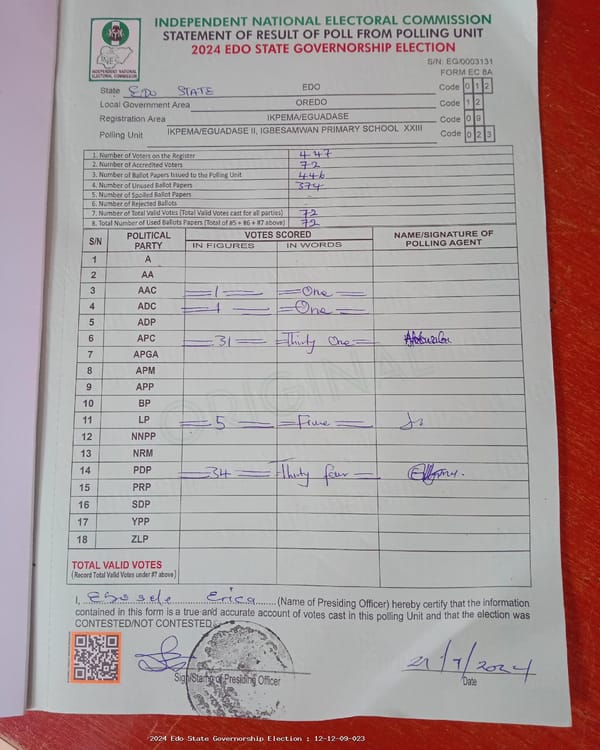 INDEPENDENT NATIONAL ELECTORAL COMMISSION
STATEMENT OF RESULT OF POLL FROM POLLING UNIT
2024 EDO STATE GOVERNORSHIP ELECTION
INEC
INDEPENDENT NATIONAL ELECTORAL COMMISSION
S/N: EG/0003131
FORM EC 8A
State EDO STATE EDO Code 0 1 2
Local Government Area OREDO Code 1 2
Registration Area IKPEMA/EGUADASE Code 0 9
Polling Unit IKPEMA/EGUADASE II, IGBESAMWAN PRIMARY SCHOOL XXIII Code 0 2 3
1. Number of Voters on the Register 447
2. Number of Accredited Voters 72
3. Number of Ballot Papers Issued to the Polling Unit 446
4. Number of Unused Ballot Papers 374
5. Number of Spoiled Ballot Papers -
6. Number of Rejected Ballots -
7. Number of Total Valid Votes (Total Valid Votes cast for all parties) 72
8. Total Number of Used Ballots Papers (Total of #5 + #6 + #7 above) 72
S/N POLITICAL PARTY VOTES SCORED NAME/SIGNATURE OF POLLING AGENT
IN FIGURES IN WORDS
1 A
2 AA
3 AAC 1 One
4 ADC 1 One
5 ADP
6 APC 31 Thirty One
7 APGA
8 APM
9 APP
10 BP
11 LP 5 Five
12 NNPP
13 NRM
14 PDP 34 Thirty four
15 PRP
16 SDP
17 YPP
18 ZLP
ORIGINAL
TOTAL VALID VOTES
(Record Total Valid Votes under #7 above)
I, Ebosele Erica (Name of Presiding Officer) hereby certify that the information
contained in this form is a true and accurate account of votes cast in this polling Unit and that the election was
CONTESTED/NOT CONTESTED.
Sign/Stamp of Presiding Officer
21/9/2024
Date
2024 Edo State Governorship Election : 12-12-09-023